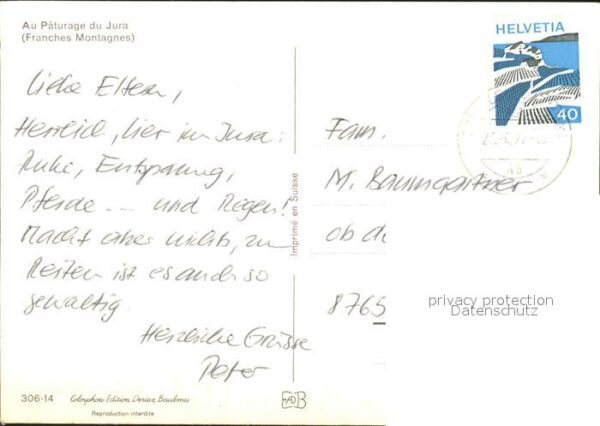 Au Pâturage du Jura
(Franches Montagnes)
Liebe Eltern,
Herrlich, hier im Jura:
Ruhe, Entspannung,
Pferde -- und Regen!
Macht aber nichts, zum
Reiten ist es auch so
gewaltig.
Herzliche Grüsse
Peter
306-14
Colorphon Edition Deriaz Baulmes
Reproduction interdite
Imprimé en Suisse
HELVETIA
40
Fam.
M. Baumgartner
ob de
8765
privacy protection
Datenschutz